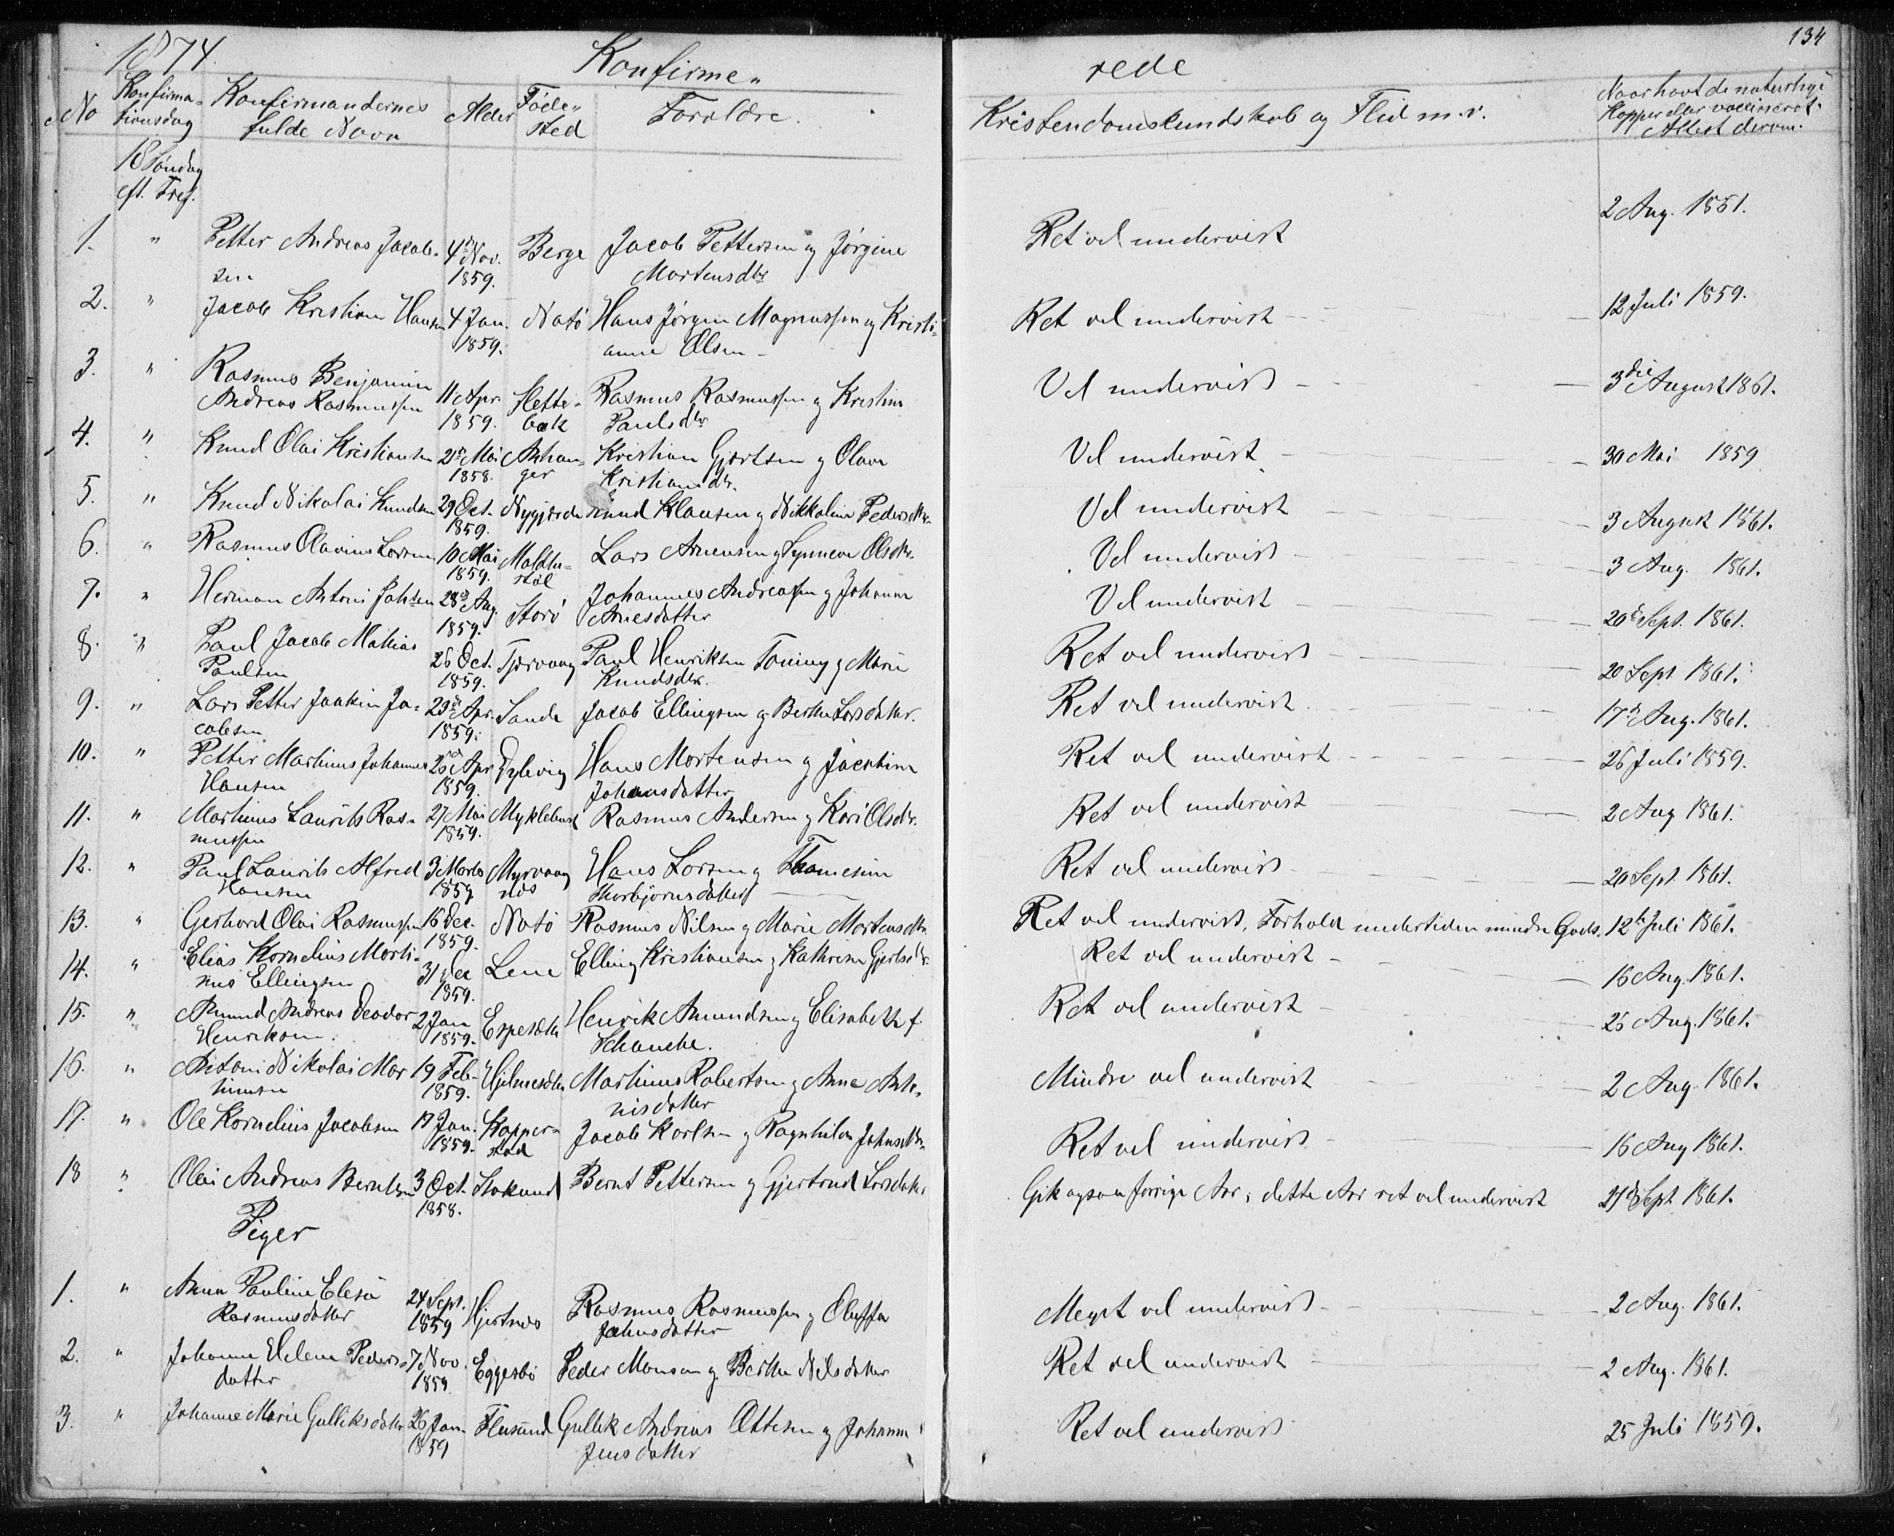 134
1874. Konfirme- rede
No Konfirma- tionsdag Konfirmandernes fulde Navn Alder Føde- sted Forældre. Kristendomskundskab og Flid m.v. Naar havt de naturlige Kopper eller vaccineret. Attest derom.
18 Søndag eft. Tref.
1. " Petter Andreas Jacob- sen 4de Nov. 1859. Berge Jacob Pettersen og Jørgine Mortensdtr Ret vel undervist 2 Aug. 1861.
2. " Jacob Kristian Hansen 4 Jan. 1859. Notø Hans Jørgen Magnussen og Kristi- anne Olsen - Ret vel undervist 12 Juli 1859.
3. " Rasmus Benjamin Andreas Rasmussen 11 Apr 1859. Slette- bak Rasmus Rasmussen og Kristine Paulsdtr Vel undervist 3die August 1861.
4. " Knud Olai Kristiansen 21de Mai 1858. Kristian Gjertsen og Olava Kristiansdtr. Vel undervist 30 Mai 1859
5. " Knud Nikolai Knudsen 29 Oct. 1859. Nygjerde Knud Klausen og Nikkoline Pedersdtr. Vel undervist 3 August 1861.
6. " Rasmus Olavius Larsen 10 Mai 1859. Lars Arnesen og Synneve Olsdtr. Vel undervist 3 Aug. 1861.
7. " Herman Antoni Johsen 28de Aug. 1859. Storø Johannes Andreassen og Johanne Arnesdatter Vel undervist 20de Sept. 1861.
8. " Paul Jacob Mathias Paulsen 26 Oct. 1859. Tjervaag Paul Henriksen og Marie Knudsdtr. Ret vel undervist 20 Sept 1861.
9. " Lars Petter Joakim Ja- cobsen 29de Apr. 1859. Sande Jacob Ellingsen og Berthe Larsdatter. Ret vel undervist 17de Aug. 1861.
10. " Petter Martinus Johannes Hansen Apr 1859. Hans Mortensen og Jacobine Johansdatter Ret vel undervist 26 Juli 1859.
11. " Martinus Laurits Ras- mussen 27 Mai 1859. Myklebust Rasmus Andersen og Kari Olsdtr. Ret vel undervist 2 Aug 1861.
12. " Paul Laurits Alfred Hansen 3 Marts 1859 Myrvaag nes Hans Larsen og Thomesine Thorbjørnsdatter Ret vel undervist 20 Sept. 1861.
13. " Gerhard Olai Rasmussen 16 Dec. 1859. Notø Rasmus Nilsen og Marie Mortensdtr. Ret vel undervist, Forhold undertiden mindre Gods. 12te Juli 1861.
14. " Elias Kornelius Marti- nus Ellingsen 31 Dec 1859. Lene Elling Kristiansen og Kathrine Gjertsdtr. Ret vel undervist 16 Aug. 1861.
15. " Amund Andreas Deodor Henriksen. 2 Jan 1859. Espesæte Henrik Amundsen og Elisabeth f Schanche. Ret vel undervist 25 Aug. 1861.
16. " Antoni Nikolai Mar tinusen 19 Feb. 1859. Hjelmesæte Martinus Robertsen og Anne Anto- nisdatter Mindre vel undervist 2 Aug. 1861.
17. " Ole Kornelius Jacobsen 17 Jan. 1859. Kopper- stad Jacob Karlsen og Ragnhilda Johnsdtr. Ret vel undervist 16 Aug 1861.
18 " Olai Andreas Berntsen 3 Oct. 1858. Stoksund Bernt Pettersen og Gjertrud Larsdatter Gik ogsaa forrige Aar, dette Aar ret vel undervist 21de Sept. 1861.
Piger
1. " Anna Pauline Elesa Rasmusdatter 24 Sept. 1859 Gjertnes Rasmus Rasmussen og Oluffa Johnsdatter Meget vel undervist 2 Aug. 1861.
2. " Johanne Helene Peders- datter 7 Nov. 1859. Eggesbø Peder Monsen og Berthe Nilsdatter Ret vel undervist 2 Aug. 1861.
3. " Johanne Marie Gulliksdatter 26 Jan. 1859 Flusund Gullik Andreas Ottesen og Johanne Jensdatter Ret vel undervist 25 Juli 1859.